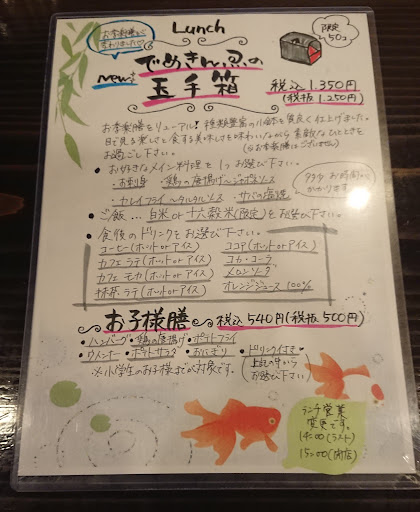 Lunch
お客様膳が
変わりました♡
限定
50コ
New!
でめきん。の
玉手箱
税込 1.350円
(税抜 1.250円)
お客様膳をリニューアル! 種類豊富の小鉢を食良く仕上げました。
目で見る楽しさと食する美味しさを味わいながら 素敵なひとときを
お過ごし下さい。
・お好きなメイン料理を1つお選び下さい。
・お刺身 ・鶏の唐揚げ
・カレイフライ タルタルソース ・サバの塩焼
多少お時間が
かかります。
・ご飯…白米 or 十六穀米(限定)をお選び下さい。
・食後のドリンクをお選び下さい。
コーヒー(ホット or アイス) ココア(ホット or アイス)
カフェラテ(ホット or アイス) コカ・コーラ
カフェモカ(ホット or アイス) メロンソーダ
抹茶ラテ(ホット or アイス) オレンジジュース 100%
お子様膳 税込 540円(税抜 500円)
・ハンバーグ ・鶏の唐揚げ ・ポテトフライ
・ウインナー ・ポテトサラダ ・おにぎり ・ドリンク付き
(上記の中から
お選び下さい)
※小学生のお子様までが対象です。
ランチ営業
変更です。
14:00(ラスト)
15:00(閉店)